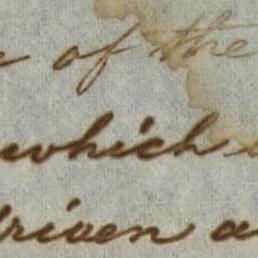 of the
which
driven a